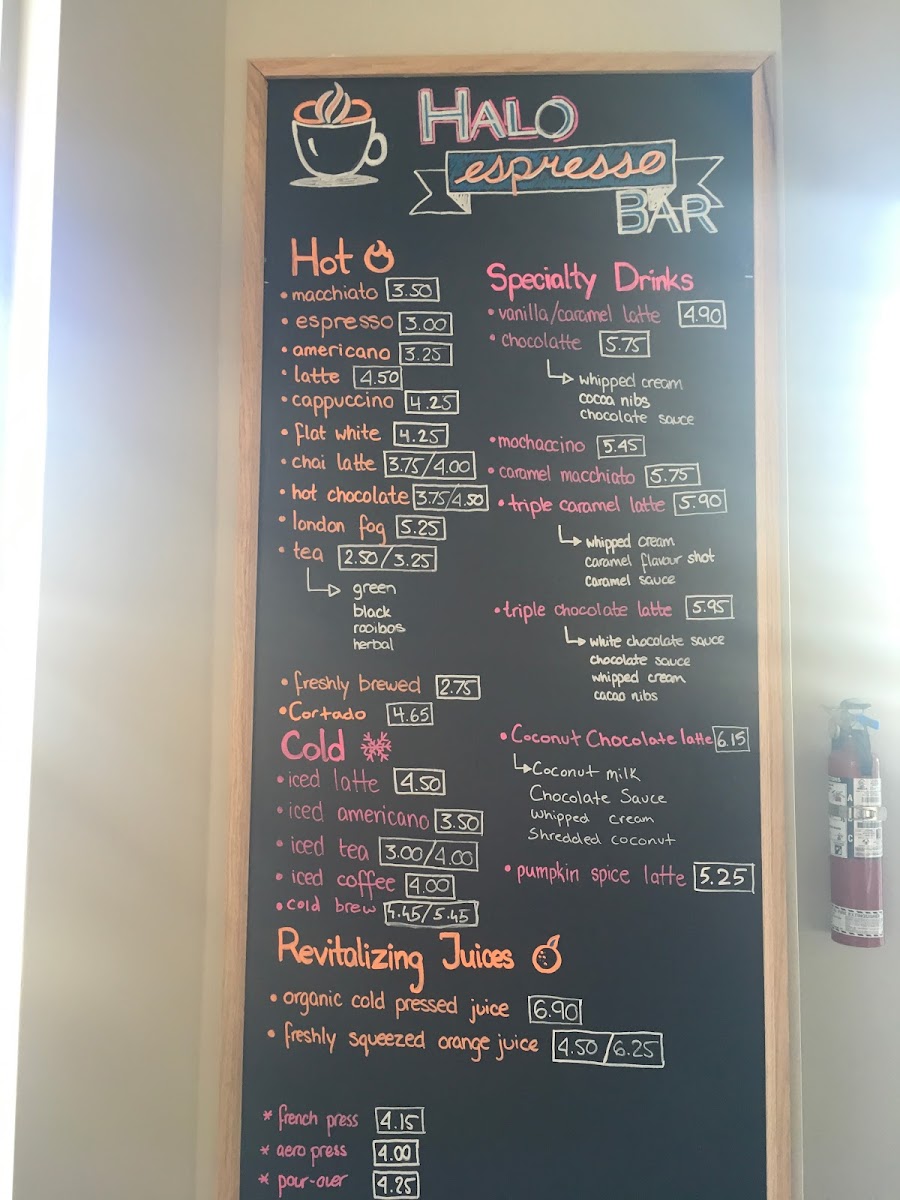 HALO
espresso
BAR
Hot
• macchiato 3.50
• espresso 3.00
• americano 3.25
• latte 4.50
• cappuccino 4.25
• flat white 4.25
• chai latte 3.75/4.00
• hot chocolate 3.75/4.50
• london fog 5.25
• tea 2.50/3.25
green
black
rooibos
herbal
• freshly brewed 2.75
• Cortado 4.65
Cold
• iced latte 4.50
• iced americano 3.50
• iced tea 3.00/4.00
• iced coffee 4.00
• cold brew 4.45/5.45
Specialty Drinks
• vanilla/caramel latte 4.90
• chocolatte 5.75
whipped cream
cocoa nibs
chocolate sauce
• mochaccino 5.45
• caramel macchiato 5.75
• triple caramel latte 5.90
whipped cream
caramel flavour shot
caramel sauce
• triple chocolate latte 5.95
white chocolate sauce
chocolate sauce
whipped cream
cacao nibs
• Coconut Chocolate latte 6.15
Coconut milk
Chocolate Sauce
Whipped cream
Shredded coconut
• pumpkin spice latte 5.25
Revitalizing Juices
• organic cold pressed juice 6.90
• freshly squeezed orange juice 4.50/6.25
* french press 4.15
* aero press 4.00
* pour-over 4.25